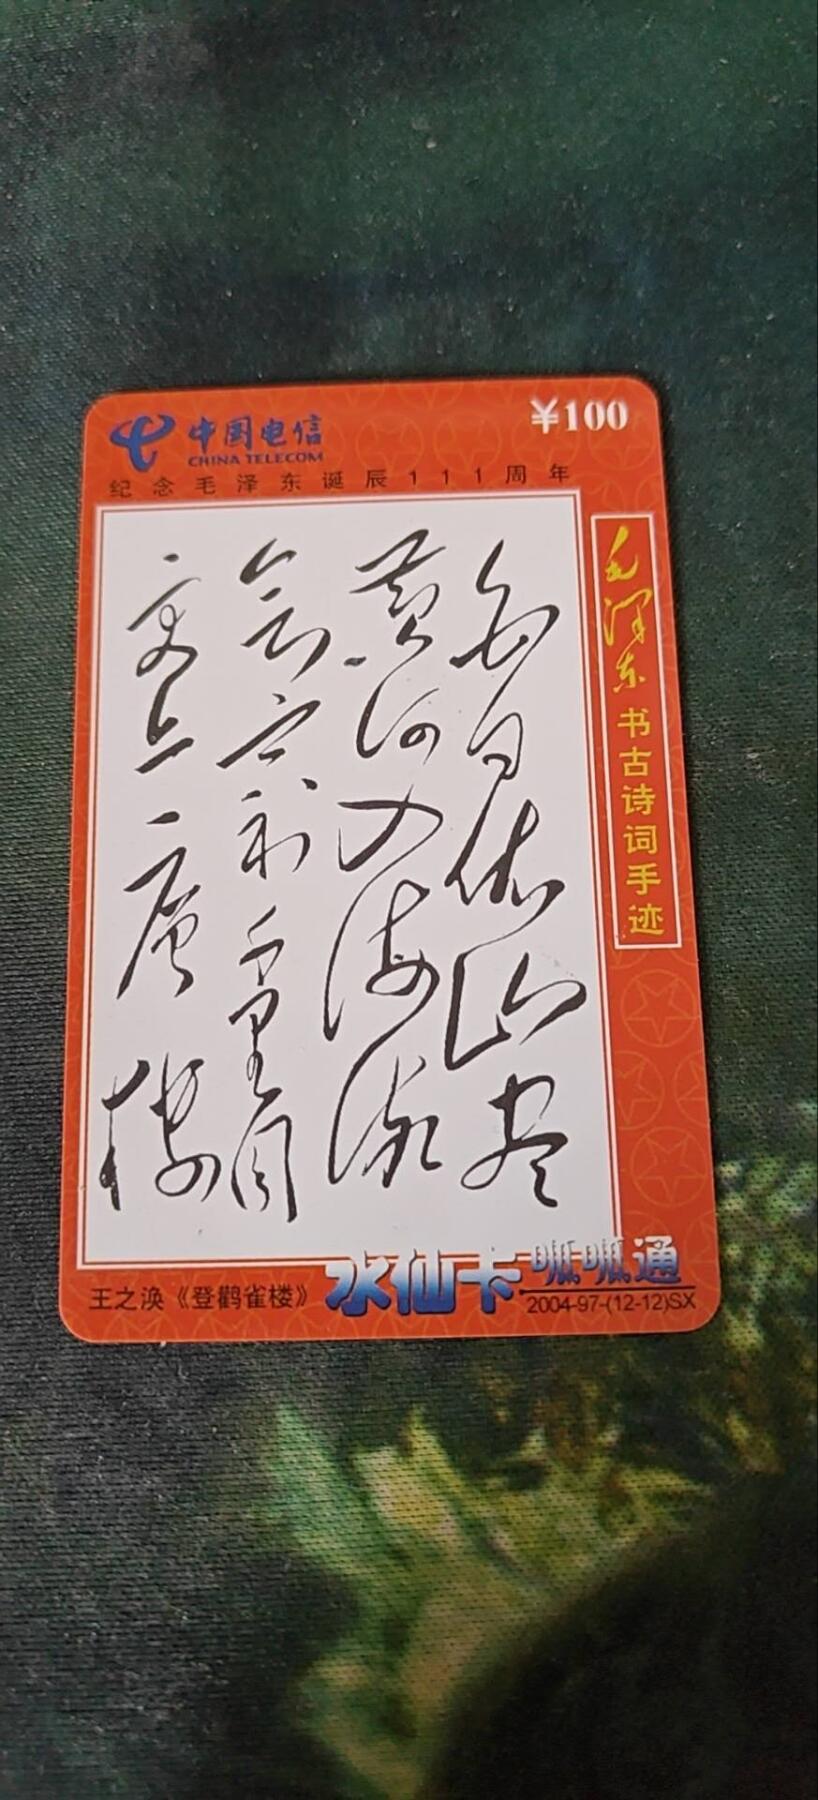 中国电信
CHINA TELECOM
¥100
纪念毛泽东诞辰111周年
毛泽东书古诗词手迹
白日依山尽
黄河入海流
欲窮千里目
更上一層樓
王之涣《登鹳雀楼》
水仙卡
呱呱通
2004-97-(12-12)SX